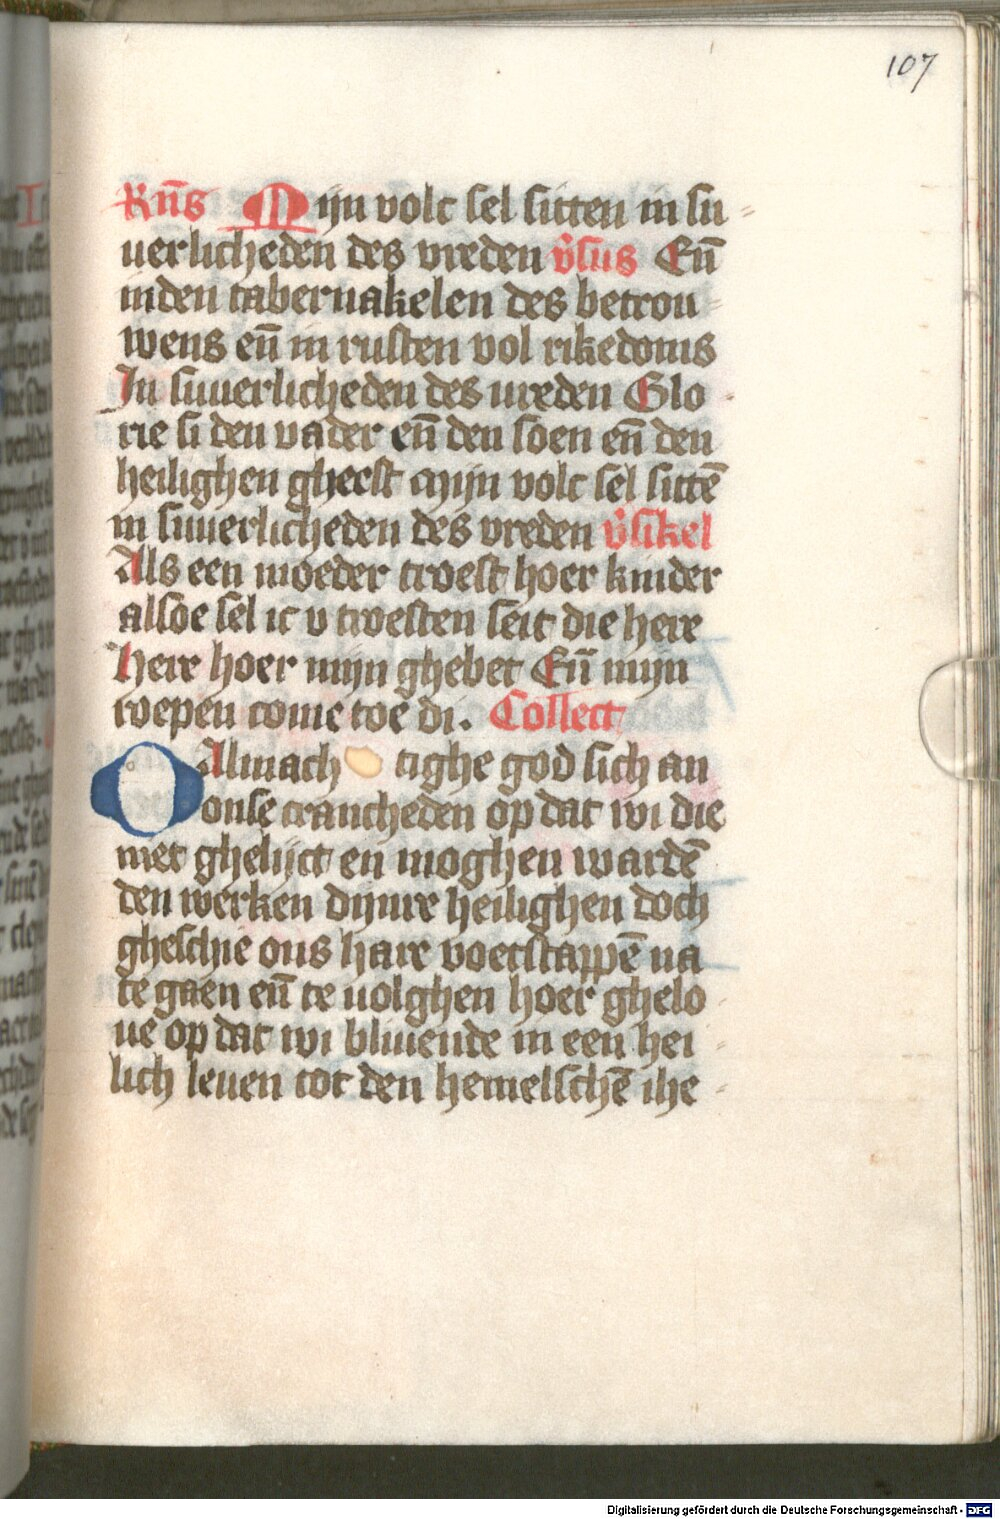 107
Rñs Mijn volc sel sitten in su
uerlicheden des vreden v̄sus Eñ
inden tabernakelen des betrou
wens eñ in rusten vol rikedoms
In suuerlicheden des vreden Glo
rie si den vader eñ den soen eñ den
heilighen gheest Mijn volc sel sittē
in suuerlicheden des vreden v̄sikel
Als een moeder troest hoer kinder
alsoe sel ic v troesten seit die here
Here hoer mijn ghebet Eñ mijn
roepen come toe di. Collect
O Almach tighe god sich an
onse crancheden op dat wi die
niet ghelijct en moghen wardē
den werken dijnre heilighen doch
gheschie ons hare voetstappē na
te gaen eñ te uolghen hoer ghelo
ue op dat wi bliuende in een hei
lich leuen tot den hemelschē ihe
Digitalisierung gefördert durch die Deutsche Forschungsgemeinschaft - DFG